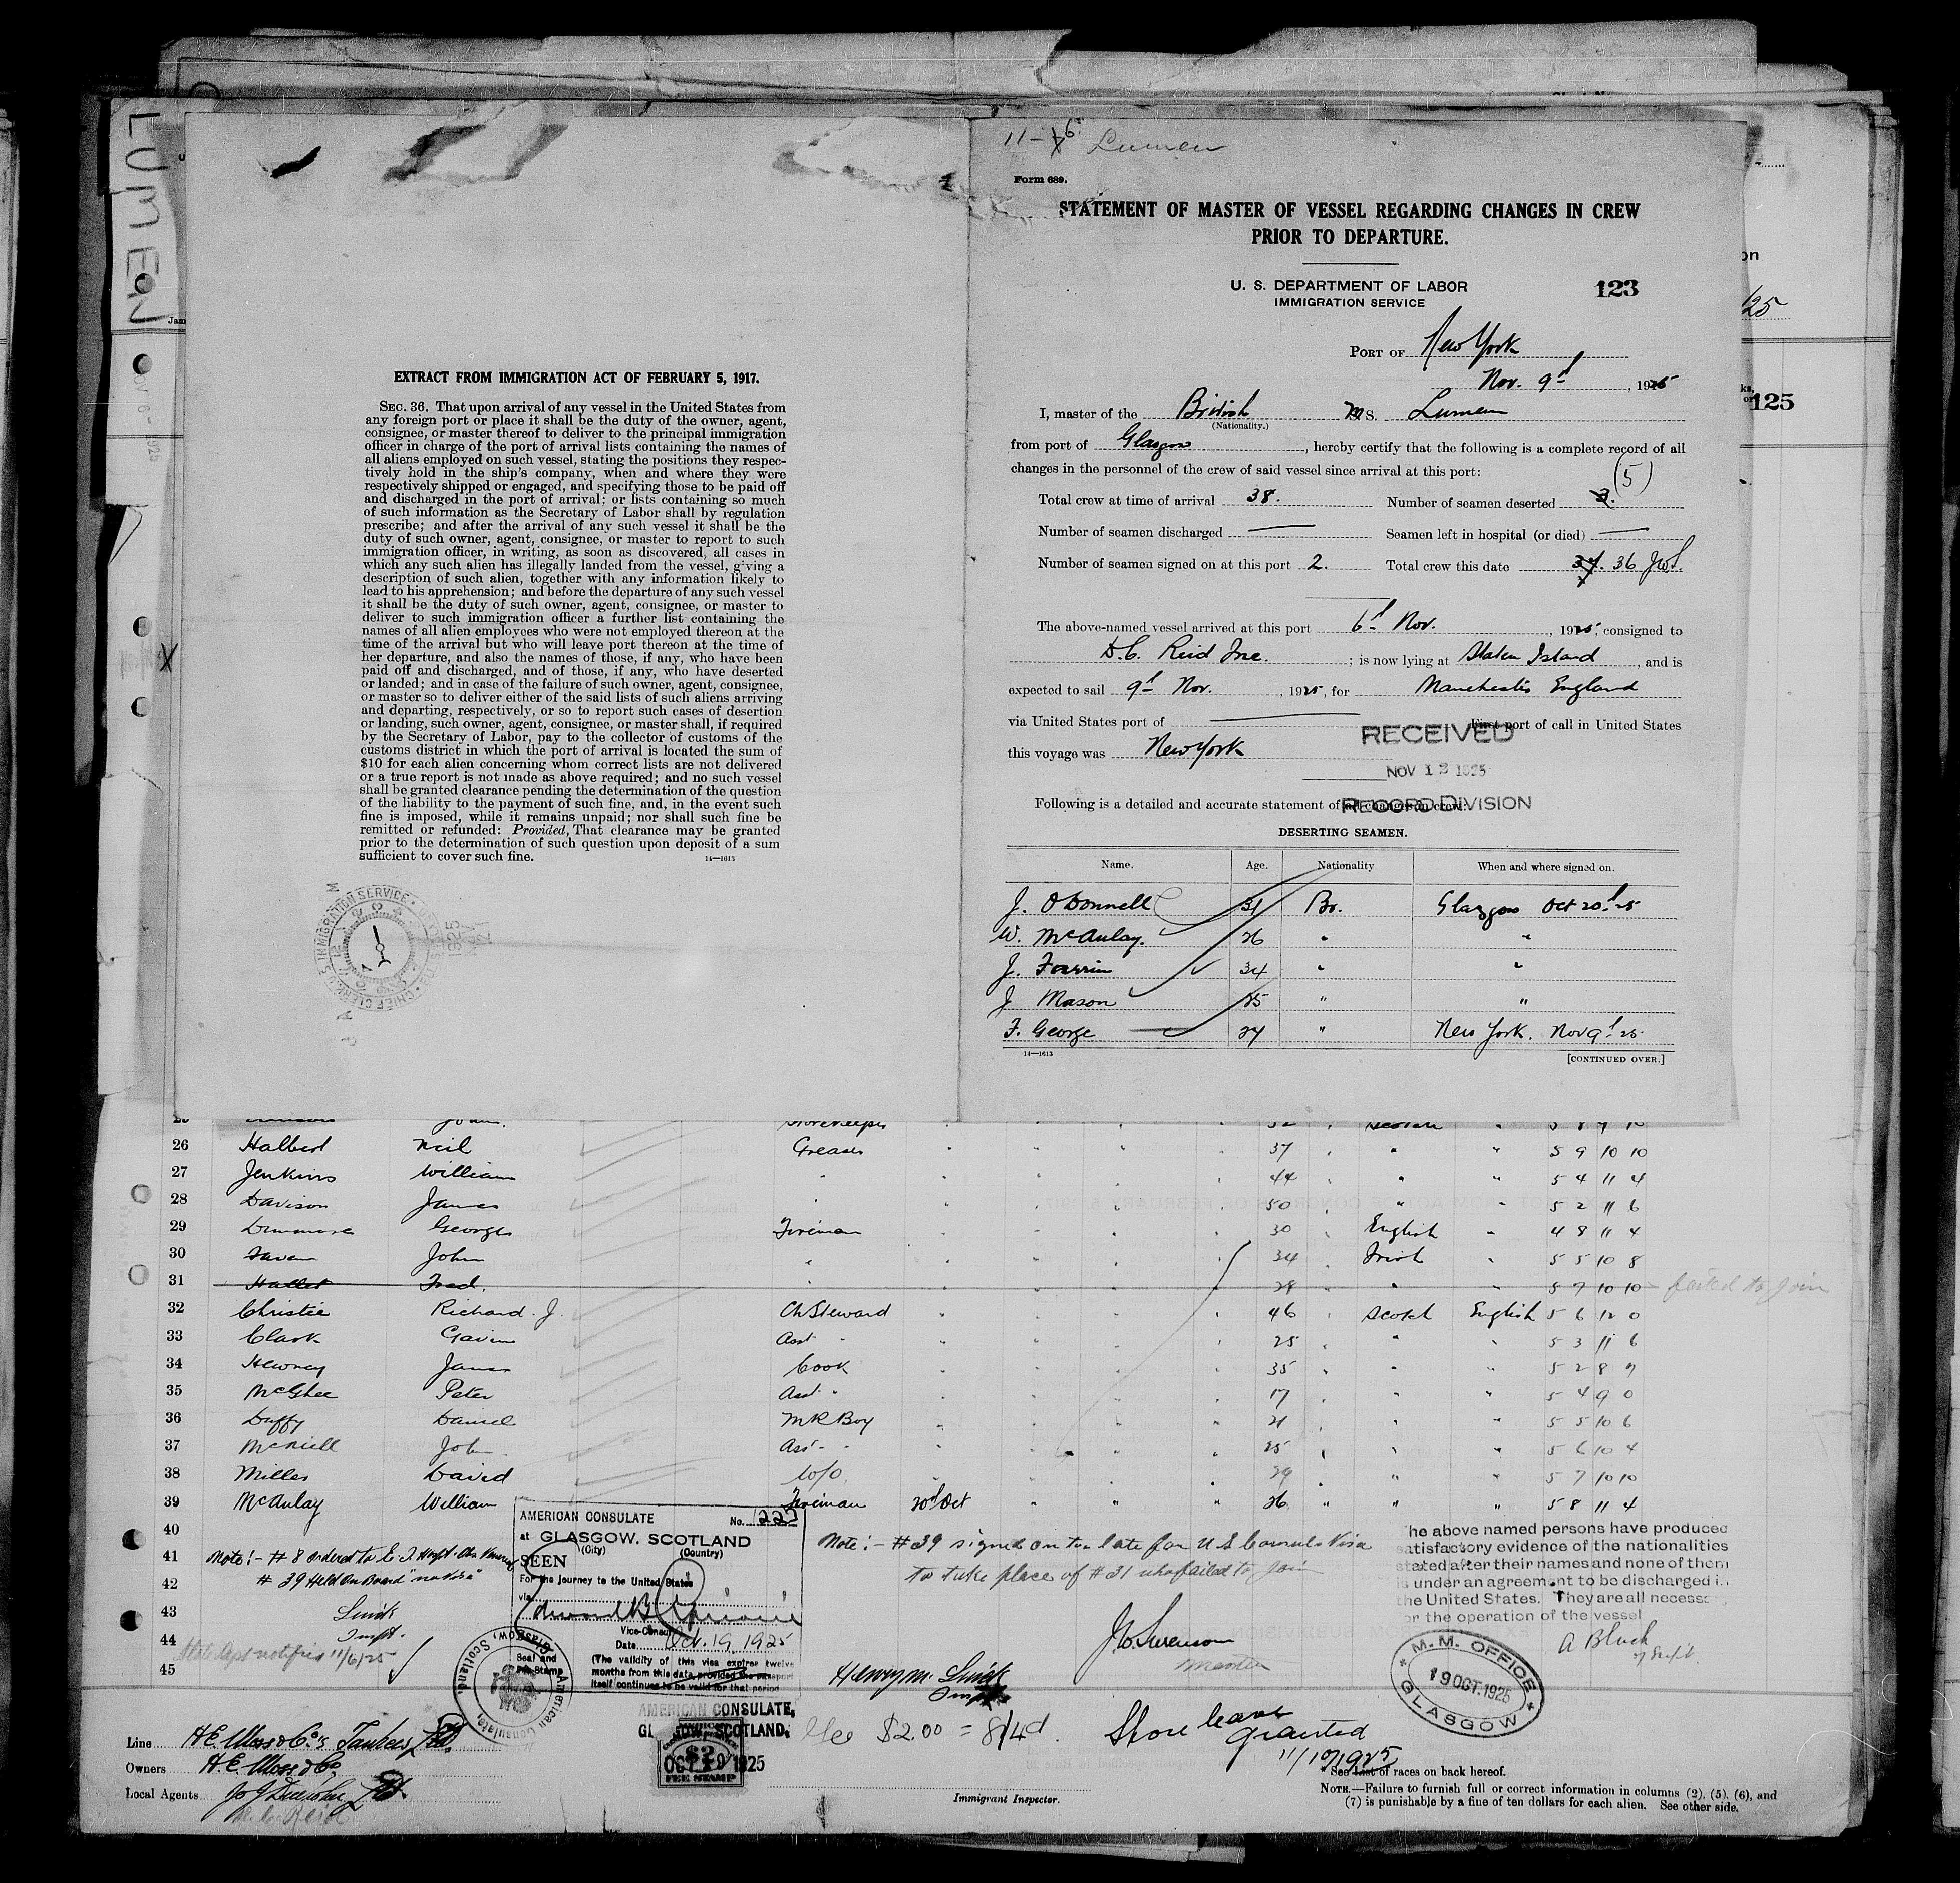 LUMEN
EXTRACT FROM IMMIGRATION ACT OF FEBRUARY 5, 1917.
SEC. 36. That upon arrival of any vessel in the United States from
any foreign port or place it shall be the duty of the owner, agent,
consignee, or master thereof to deliver to the principal immigration
officer in charge of the port of arrival lists containing the names of
all aliens employed on such vessel, stating the positions they respec-
tively hold in the ship's company, when and where they were
respectively shipped or engaged, and specifying those to be paid off
and discharged in the port of arrival; or lists containing so much
of such information as the Secretary of Labor shall by regulation
prescribe; and after the arrival of any such vessel it shall be the
duty of such owner, agent, consignee, or master to report to such
immigration officer, in writing, as soon as discovered, all cases in
which any such alien has illegally landed from the vessel, giving a
description of such alien, together with any information likely to
lead to his apprehension; and before the departure of any such vessel
it shall be the duty of such owner, agent, consignee, or master to
deliver to such immigration officer a further list containing the
names of all alien employees who were not employed thereon at the
time of the arrival but who will leave port thereon at the time of
her departure, and also the names of those, if any, who have been
paid off and discharged, and of those, if any, who have deserted
or landed; and in case of the failure of such owner, agent, consignee,
or master so to deliver either of the said lists of such aliens arriving
and departing, respectively, or so to report such cases of desertion
or landing, such owner, agent, consignee, or master shall, if required
by the Secretary of Labor, pay to the collector of customs of the
customs district in which the port of arrival is located the sum of
$10 for each alien concerning whom correct lists are not delivered
or a true report is not made as above required; and no such vessel
shall be granted clearance pending the determination of the question
of the liability to the payment of such fine, and, in the event such
fine is imposed, while it remains unpaid; nor shall such fine be
remitted or refunded: Provided, That clearance may be granted
prior to the determination of such question upon deposit of a sum
sufficient to cover such fine.
14—1613
11-6 Lumen
Form 689.
STATEMENT OF MASTER OF VESSEL REGARDING CHANGES IN CREW
PRIOR TO DEPARTURE.
U. S. DEPARTMENT OF LABOR
IMMIGRATION SERVICE
123
PORT OF New York
Nov. 9th, 1925
I, master of the British MS. Lumen
(Nationality.)
from port of Glasgow, hereby certify that the following is a complete record of all
changes in the personnel of the crew of said vessel since arrival at this port:
Total crew at time of arrival 38. Number of seamen deserted 3. (5)
Number of seamen discharged — Seamen left in hospital (or died) —
Number of seamen signed on at this port 2. Total crew this date 37. 36 JWS.
The above-named vessel arrived at this port 6th Nov., 1925, consigned to
D.C. Reid Inc.; is now lying at Staten Island, and is
expected to sail 9th Nov., 1925, for Manchester England
via United States port of — First port of call in United States
this voyage was New York
RECEIVED
NOV 12 1925
RECORD DIVISION
Following is a detailed and accurate statement of all changes in crew:
DESERTING SEAMEN.
Name. Age. Nationality When and where signed on.
J. O'Donnell 31 Br. Glasgow Oct 20th 25
W. McAulay. 26 " "
J. 34 " "
J Mason 25 " "
F. George 24 " New York. Nov 9th 25
14—1613
[CONTINUED OVER.]
125
John. Storekeeper 52 Scotch
26 Halbert Neil Greaser 37 " " 5 9 10 10
27 Jenkins William " 44 " " 5 4 11 4
28 Davison James " 50 " " 5 2 11 6
29 Dinsmore George Fireman 30 English " 4 8 11 4
30 John " 34 Irish " 5 5 10 8
31 Hallet Fred. " 28 " " 5 7 10 10 failed to join
32 Christie Richard J. Ch Steward 46 Scotch English 5 6 12 0
33 Clark Gavin Asst " 25 " " 5 3 11 6
34 James Cook 35 " " 5 2 8 7
35 McGhee Peter Asst " 17 " " 5 4 9 0
36 Duffy Daniel M R Boy 21 " " 5 5 10 6
37 McNeill John Ass " 25 " " 5 6 10 4
38 Miller David W/O. 29 " " 5 7 10 10
39 McAulay William Fireman 20th Oct " " " 26 " " " 5 8 11 4
40
41 Note:- # 8 ordered to
42 # 39 Held On Board "no Visa"
43
44
45
State Dept notified 11/6/25
Note:- #39 signed on too late for U S Consuls Visa
to take place of #31 who failed to join
AMERICAN CONSULATE No. 227
at GLASGOW, SCOTLAND
(City) (Country)
SEEN
For the journey to the United States
via
Vice-Consul
Date Oct. 19, 1925
Seal and
Fee Stamp
(The validity of this visa expires twelve
months from this date, provided the passport
itself continues to be valid for that period
American Consulate, Glasgow, Scotland.
The above named persons have produced
satisfactory evidence of the nationalities
stated after their names and none of them
is under an agreement to be discharged in
the United States. They are all necessary
for the operation of the vessel
J W Swenson
Master
A Black
M. M. OFFICE
19 OCT. 1925
GLASGOW
AMERICAN CONSULATE,
GLASGOW SCOTLAND.
$2
OCT 19 1925
FEE STAMP
Fee $2.00 = 8/4d.
Shore leave
granted
11/10/1925
Line H.E. Moss & Co's Tankers Ltd.
Owners H.E. Moss & Co.
Local Agents
Immigrant Inspector.
See List of races on back hereof.
NOTE.—Failure to furnish full or correct information in columns (2), (5), (6), and
(7) is punishable by a fine of ten dollars for each alien. See other side.